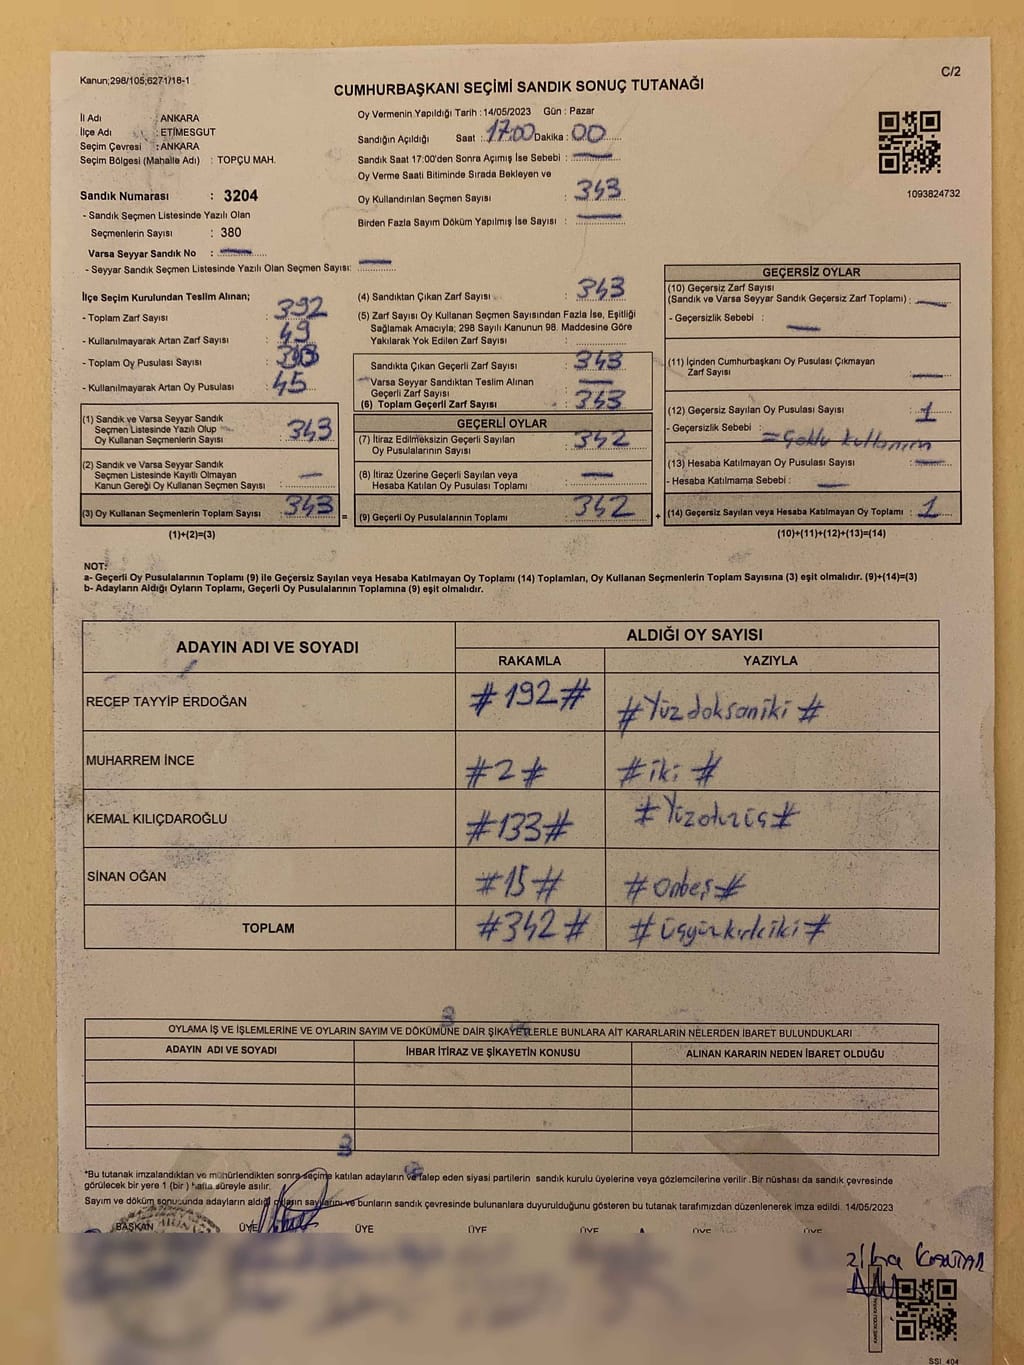 Kanun;298/105;6271/18-1
C/2
CUMHURBAŞKANI SEÇİMİ SANDIK SONUÇ TUTANAĞI
İl Adı : ANKARA
İlçe Adı : ETİMESGUT
Seçim Çevresi : ANKARA
Seçim Bölgesi (Mahalle Adı) : TOPÇU MAH.
Sandık Numarası : 3204
- Sandık Seçmen Listesinde Yazılı Olan
Seçmenlerin Sayısı : 380
Varsa Seyyar Sandık No :
- Seyyar Sandık Seçmen Listesinde Yazılı Olan Seçmen Sayısı:
Oy Vermenin Yapıldığı Tarih : 14/05/2023 Gün : Pazar
Sandığın Açıldığı Saat : 17:00 Dakika : 00
Sandık Saat 17:00'den Sonra Açımış İse Sebebi :
Oy Verme Saati Bitiminde Sırada Bekleyen ve
Oy Kullandırılan Seçmen Sayısı : 343
Birden Fazla Sayım Döküm Yapılmış İse Sayısı :
1093824732
İlçe Seçim Kurulundan Teslim Alınan;
- Toplam Zarf Sayısı : 392
- Kullanılmayarak Artan Zarf Sayısı : 49
- Toplam Oy Pusulası Sayısı :
- Kullanılmayarak Artan Oy Pusulası : 45
(1) Sandık ve Varsa Seyyar Sandık
Seçmen Listesinde Yazılı Olup
Oy Kullanan Seçmenlerin Sayısı : 343
(2) Sandık ve Varsa Seyyar Sandık
Seçmen Listesinde Kayıtlı Olmayan
Kanun Gereği Oy Kullanan Seçmen Sayısı :
(3) Oy Kullanan Seçmenlerin Toplam Sayısı : 343 =
(1)+(2)=(3)
(4) Sandıktan Çıkan Zarf Sayısı : 343
(5) Zarf Sayısı Oy Kullanan Seçmen Sayısından Fazla İse, Eşitliği
Sağlamak Amacıyla; 298 Sayılı Kanunun 98. Maddesine Göre
Yakılarak Yok Edilen Zarf Sayısı :
Sandıkta Çıkan Geçerli Zarf Sayısı : 343
Varsa Seyyar Sandıktan Teslim Alınan
Geçerli Zarf Sayısı :
(6) Toplam Geçerli Zarf Sayısı : 343
GEÇERLİ OYLAR
(7) İtiraz Edilmeksizin Geçerli Sayılan
Oy Pusulalarının Sayısı : 342
(8) İtiraz Üzerine Geçerli Sayılan veya
Hesaba Katılan Oy Pusulası Toplamı :
(9) Geçerli Oy Pusulalarının Toplamı : 342 +
GEÇERSİZ OYLAR
(10) Geçersiz Zarf Sayısı
(Sandık ve Varsa Seyyar Sandık Geçersiz Zarf Toplamı) :
- Geçersizlik Sebebi :
(11) İçinden Cumhurbaşkanı Oy Pusulası Çıkmayan
Zarf Sayısı :
(12) Geçersiz Sayılan Oy Pusulası Sayısı : 1
- Geçersizlik Sebebi : = Çoklu kullanım
(13) Hesaba Katılmayan Oy Pusulası Sayısı :
- Hesaba Katılmama Sebebi :
(14) Geçersiz Sayılan veya Hesaba Katılmayan Oy Toplamı : 1
(10)+(11)+(12)+(13)=(14)
NOT:
a- Geçerli Oy Pusulalarının Toplamı (9) ile Geçersiz Sayılan veya Hesaba Katılmayan Oy Toplamı (14) Toplamları, Oy Kullanan Seçmenlerin Toplam Sayısına (3) eşit olmalıdır. (9)+(14)=(3)
b- Adayların Aldığı Oyların Toplamı, Geçerli Oy Pusulalarının Toplamına (9) eşit olmalıdır.
ADAYIN ADI VE SOYADI
ALDIĞI OY SAYISI
RAKAMLA YAZIYLA
RECEP TAYYİP ERDOĞAN #192# #Yüzdoksaniki#
MUHARREM İNCE #2# #iki#
KEMAL KILIÇDAROĞLU #133# #Yüzotuzüç#
SİNAN OĞAN #15# #onbeş#
TOPLAM #342# #üçyüzkırkiki#
OYLAMA İŞ VE İŞLEMLERİNE VE OYLARIN SAYIM VE DÖKÜMÜNE DAİR ŞİKAYETLERLE BUNLARA AİT KARARLARIN NELERDEN İBARET BULUNDUKLARI
ADAYIN ADI VE SOYADI İHBAR İTİRAZ VE ŞİKAYETİN KONUSU ALINAN KARARIN NEDEN İBARET OLDUĞU
*Bu tutanak imzalandıktan ve mühürlendikten sonra seçime katılan adayların ve talep eden siyasi partilerin sandık kurulu üyelerine veya gözlemcilerine verilir. Bir nüshası da sandık çevresinde
görülecek bir yere 1 (bir) hafta süreyle asılır.
Sayım ve döküm sonucunda adayların aldığı oyların sayılarını ve bunların sandık çevresinde bulunanlara duyurulduğunu gösteren bu tutanak tarafımızdan düzenlenerek imza edildi. 14/05/2023
BAŞKAN ÜYE ÜYE ÜYE ÜYE ÜYE
SSİ 404